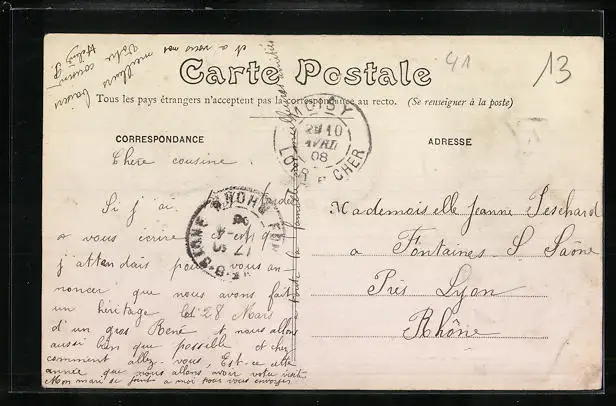 41
13
et a vous nos
meilleurs baisers
Votre cousine
Carte Postale
Tous les pays étrangers n'acceptent pas la correspondance au recto. (Se renseigner à la poste)
CORRESPONDANCE
ADRESSE
Chère cousine.
Si j'ai tardé
a vous écrire c'est que
j'attendais pour vous an
noncer que nous avons fait
un héritage le 28 Mars
d'un gros René et nous allons
aussi bien que possible et chez
comment allez-vous, Est-ce cette
année que nous allons avoir votre visite
Mon mari se joint a moi pour vous envoyer
10
AVRIL
08
LOIR & CHER
RHONE
Mademoiselle Jeanne Peschard
a Fontaines S Saône
Près Lyon
Rhône